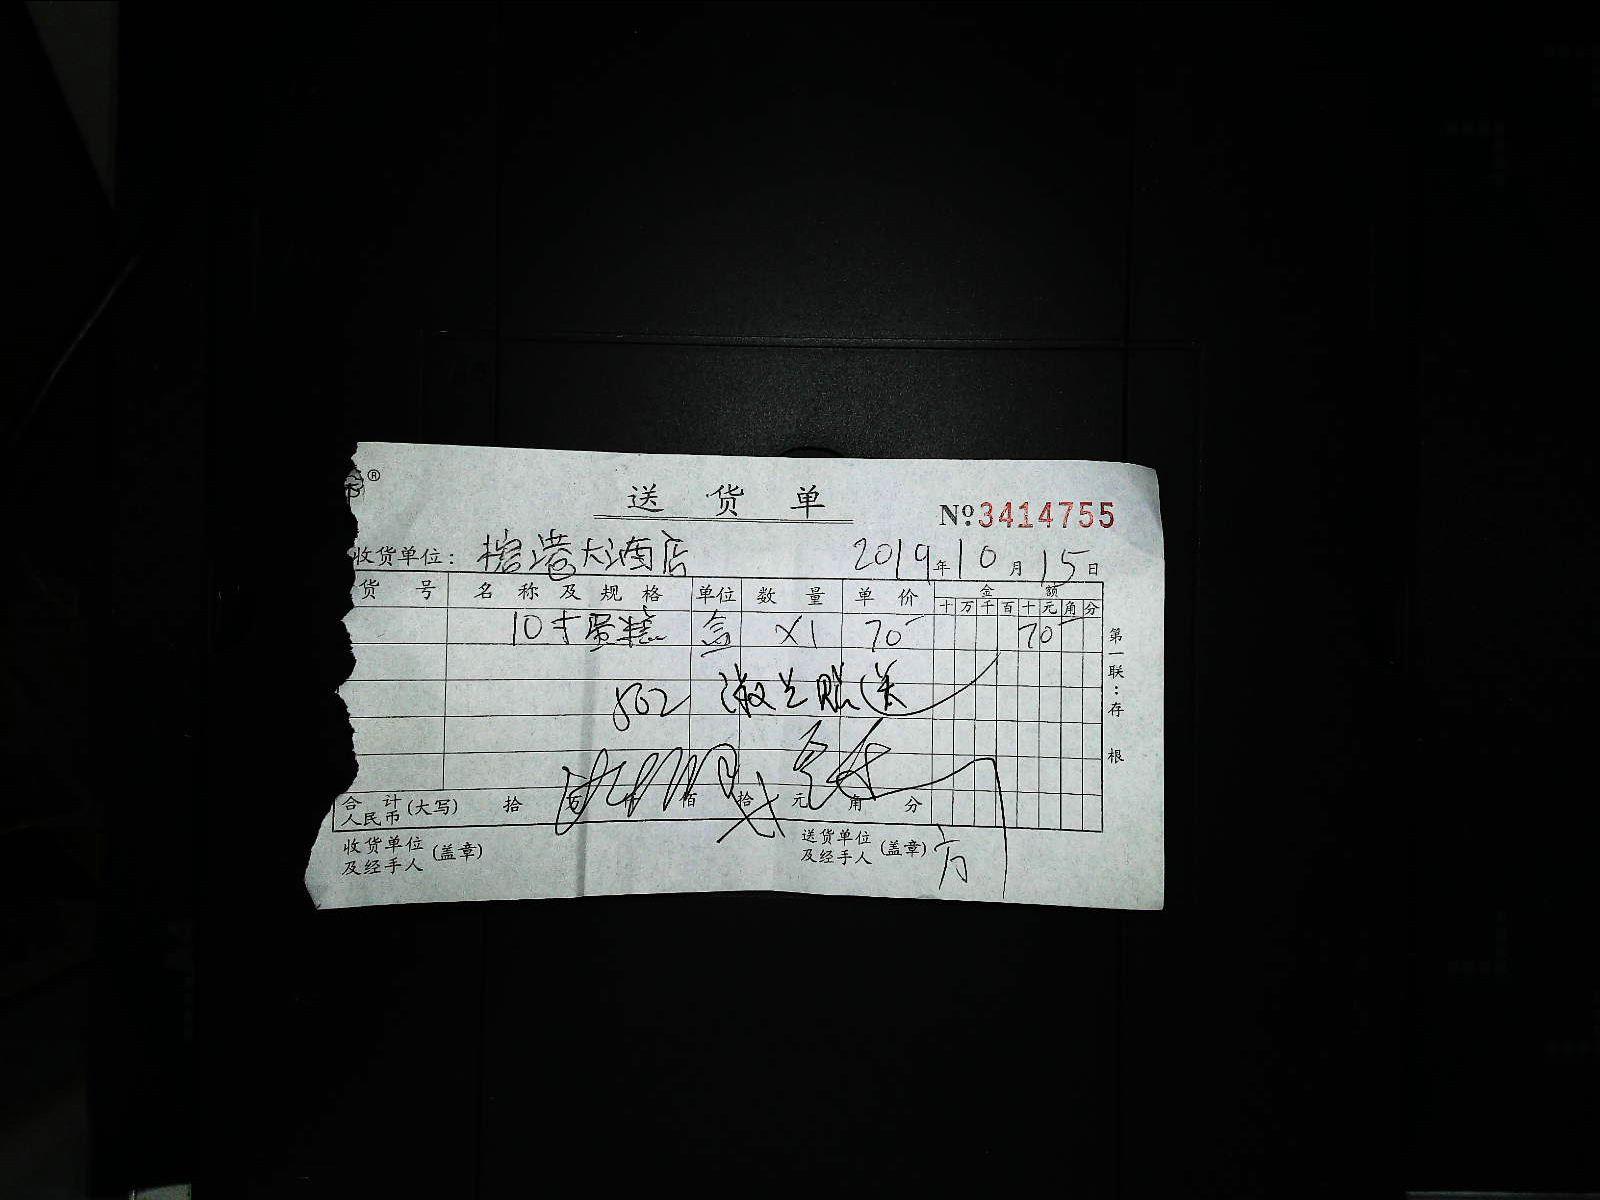 ®
送货单
№3414755
收货单位: 大酒店 2019年10月15日
货号 名称及规格 单位 数量 单价 金额
十万千百十元角分
10寸蛋糕 盒 X1 70 70
802 赠送
合计人民币(大写) 拾 佰 拾 元 角 分
收货单位及经手人(盖章) 送货单位及经手人(盖章) 方
第一联:存根